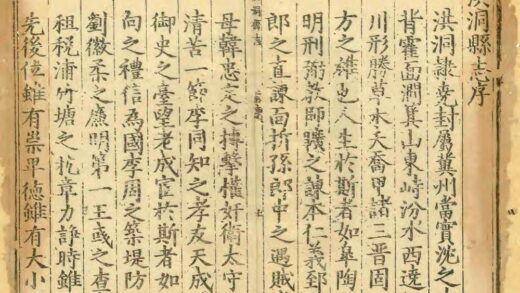 洞縣志序
洪洞隸堯封屬冀州當實沈之
背霍面澗箕山東峙汾水西遶
川形勝草木夭喬甲諸三晉固
方之雄也人生於斯者如皐陶
明刑弼教師曠之諫本仁義郅
郎之直諫面折孫郎中之遇賊
母韓忠定之搏擊權奸衛太守
清苦一節李同知之孝友天成
御史之臺望老成宦於斯者如
向之禮信為國李周之築堤防
劉徽柔之廉明第一王彧之查
租稅浦竹塘之抗章力諍時雖
先後位雖有崇卑德雖有大小